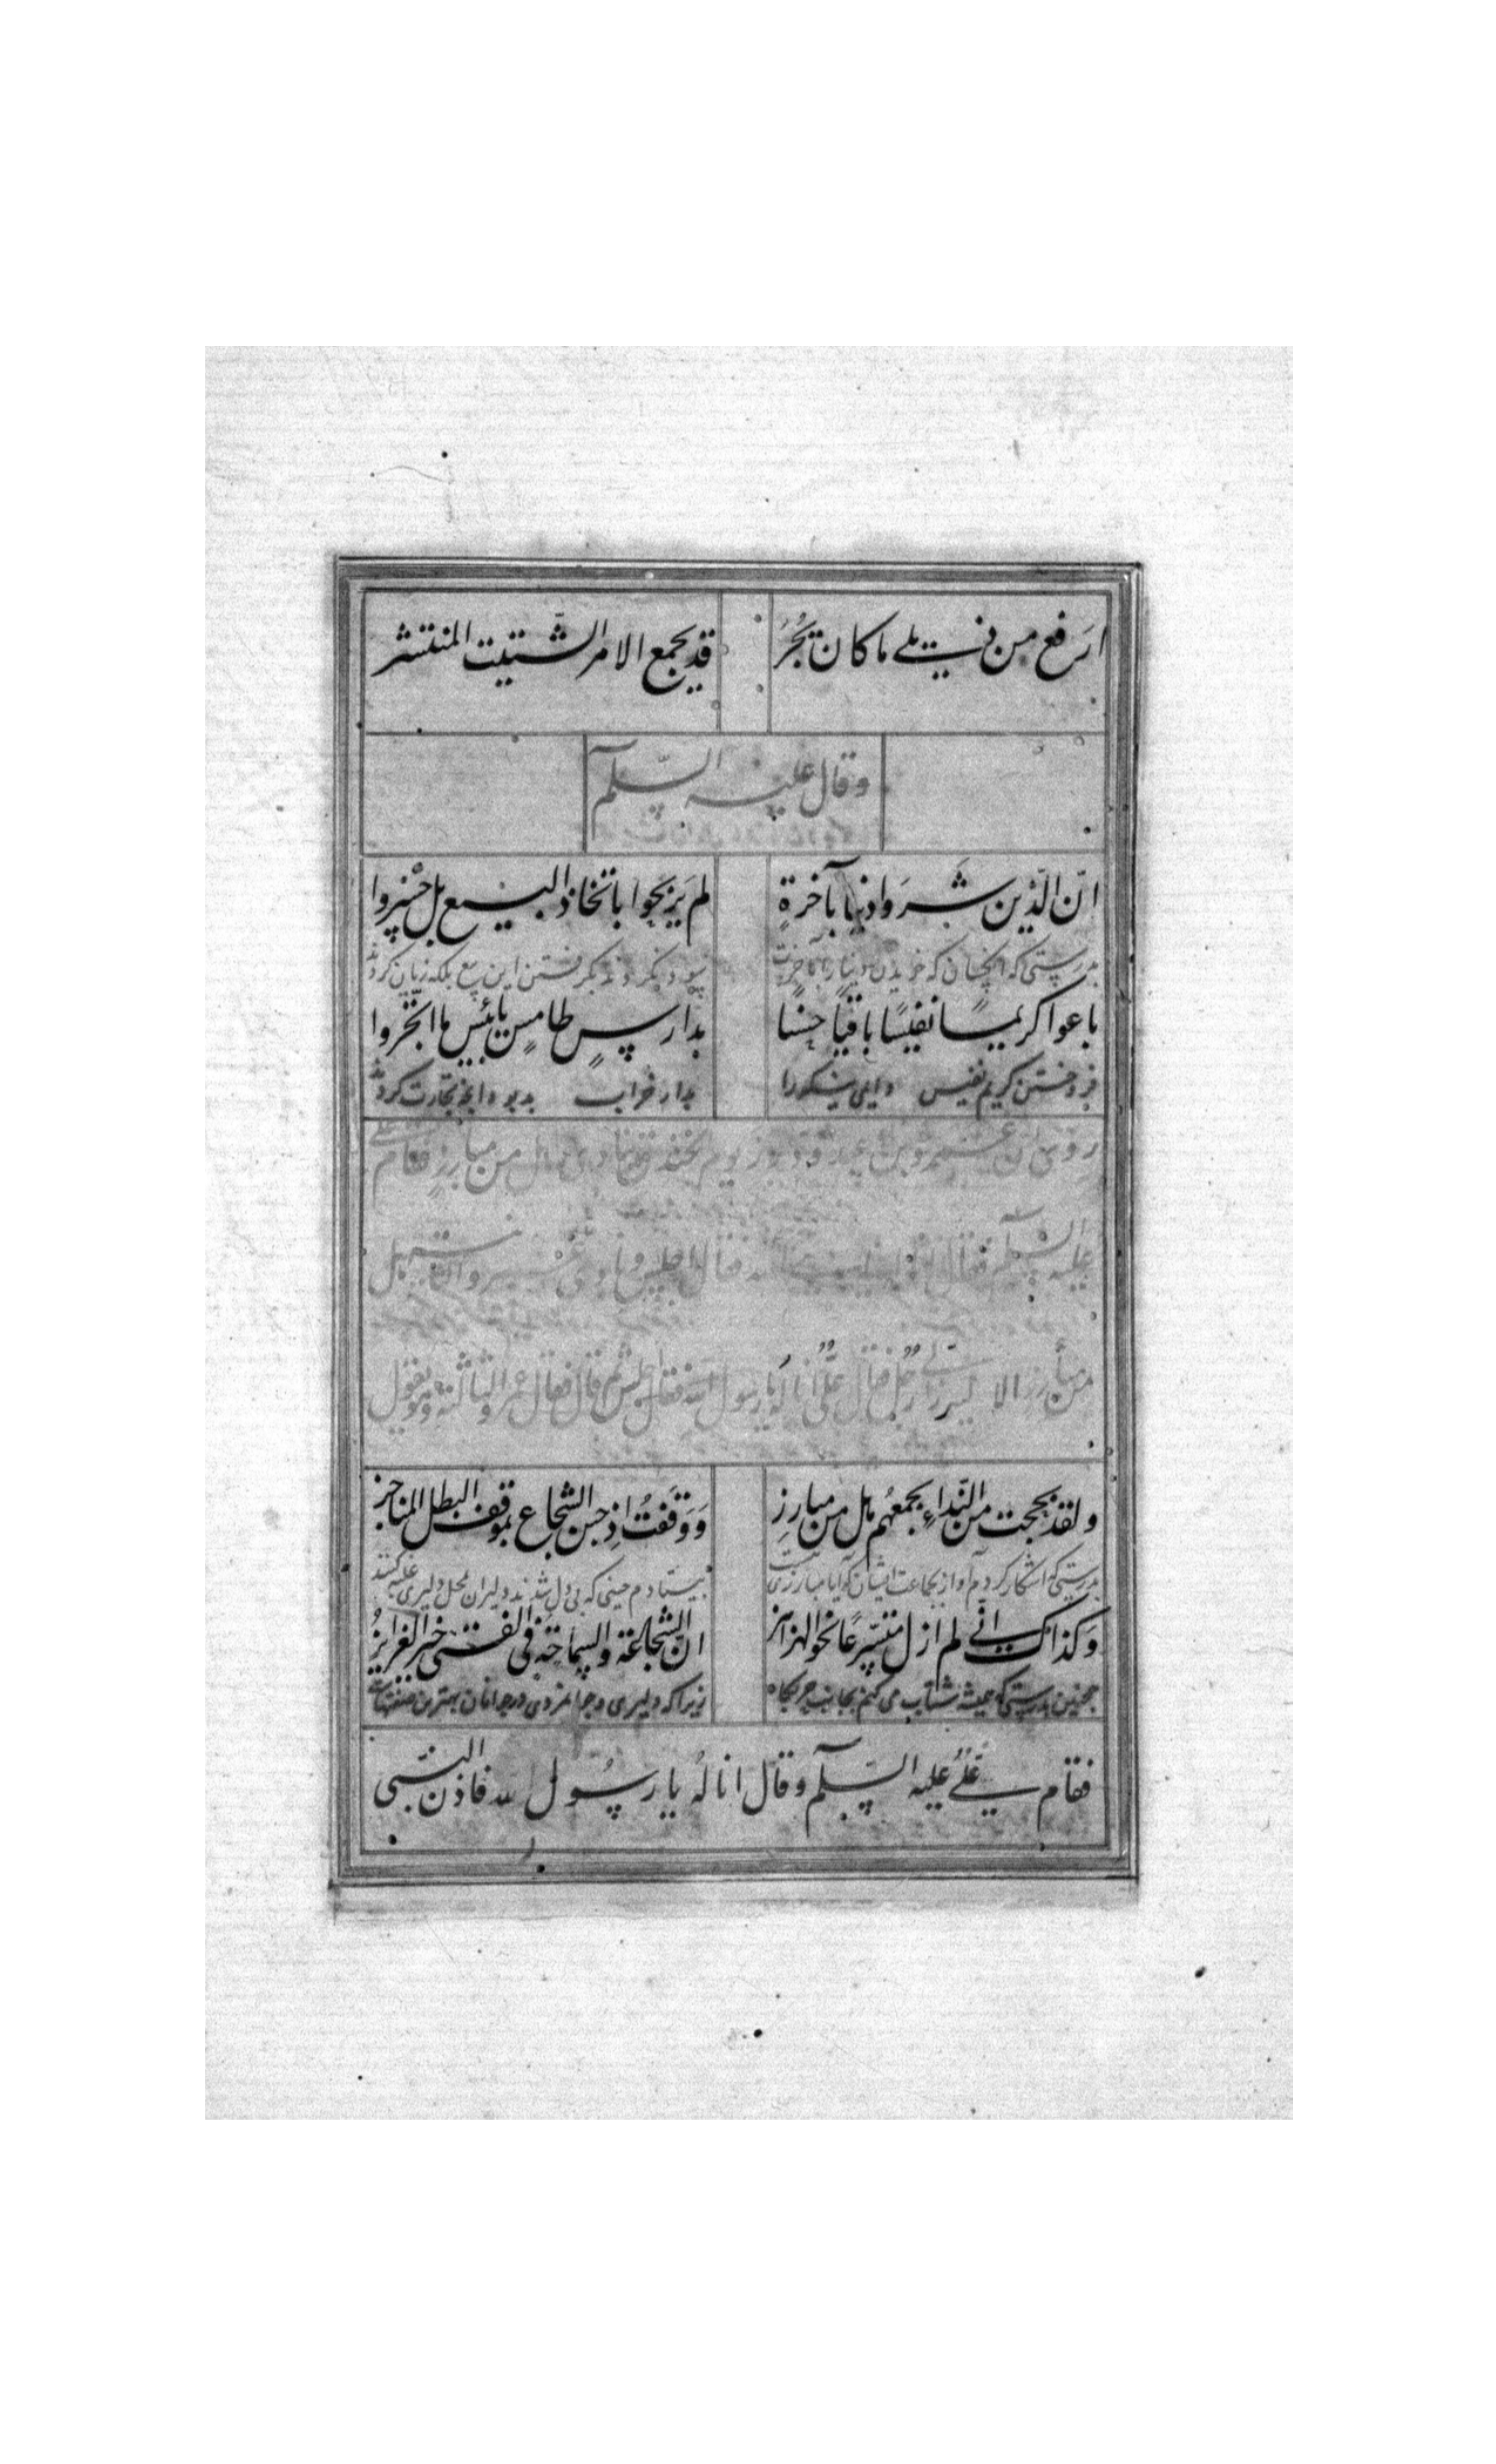 ارفع من ذيلي ما كان يجر قد يجمع الامر الشتيت المنتشر
وقال عليه السّلم
انّ الّذين شروا دنيا بآخرةٍ لم يربحوا باتخاذ البيع بل خسروا
بدرستی که آنچنان که خریدن دنیا را بآخرت سود نکردند بگرفتن این بیع بلکه زیان کردند
باعوا كريمًا نفيسًا باقيًا حسنا بدارسٍ طامسٍ يا بئس ما اتّجروا
فروختن کریم نفیس نیکو را بدار خراب بد بود تجارت کردند
روي انّ عمرو بن عبد ودّ برز يوم الخندق فنادى هل من مبارز فقام علي
عليه السّلم فقال انا يا الله فقال اجلس ونادى عمرو الثانية هل
من مبارز الا رجل فقال عليّ انا له يا رسول الله فقال اجلس ثم قال فقال عمرو الثالثة وهو يقول
ولقد بححت من النّداء بجمعهم هل من مبارزِ ووقفتُ اذ جبن الشجاع بموقف البطل المناجز
بدرستی که آشکار کردم آواز بجماعت ایشان که آیا مبارزی نیست بیستادم حینی که بی دل شدند دلیران محل دلیری
وكذاك اني لم ازل متسرّعًا نحو الهزاهز انّ الشجاعة والسماحة في الفتى خير الغرايز
همچنین بدرستی که همیشه شتاب می کنم بجانب حربگاه زیرا که دلیری و جوانمردی در جوانان بهترین صفتهاست
فقام عليٌّ عليه السّلم وقال انا لهُ يا رسُول الله فاذن النبيّ